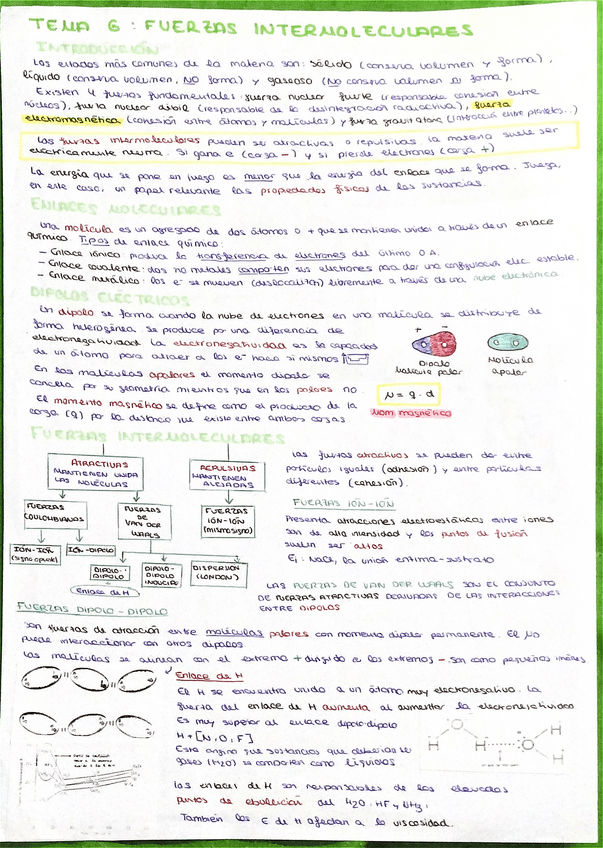 TEMA 6: FUERZAS INTERMOLECULARES
INTRODUCCIÓN
Los estados más comunes de la materia son: sólido (conserva volumen y forma),
líquido (conserva volumen, NO forma) y gaseoso (No conserva volumen ni forma).
Existen 4 fuerzas fundamentales: fuerza nuclear fuerte (responsable cohesión entre
núcleos), fuerza nuclear débil (responsable de la desintegración radiactiva), fuerza
electromagnética (cohesión entre átomos y moléculas) y fuerza gravitatoria (interacción entre planetas...)
Las fuerzas intermoleculares pueden ser atractivas o repulsivas la materia suele ser
eléctricamente neutra. Si gana e (carga -) y si pierde electrones (carga +)
La energía que se pone en juego es menor que la energía del enlace que se forma. Juega,
en este caso, un papel relevante las propiedades físicas de las sustancias.
ENLACES MOLECULARES
Una molécula es un agregado de dos átomos o + que se mantienen unidos a través de un enlace
químico. Tipos de enlace químico:
- Enlace iónico produce la transferencia de electrones del último O.A.
- Enlace covalente: dos no metales comparten sus electrones para dar una configuración elec. estable.
- Enlace metálico: los e- se mueven (deslocalizan) libremente a través de una nube electrónica
DIPOLOS ELÉCTRICOS
Un dipolo se forma cuando la nube de electrones en una molécula se distribuye de
forma heterogénea. Se produce por una diferencia de
electronegatividad. La electronegatividad es la capacidad
de un átomo para atraer a los e- hacia sí mismos
+ -
Dipolo
Molécula polar
Molécula
apolar
En las moléculas apolares el momento dipolo se
cancela por su geometría mientras que en los polares no.
El momento magnético se define como el producto de la
carga (q) por la distancia que existe entre ambas cargas
μ = q · d
Mom. magnético
FUERZAS INTERMOLECULARES
ATRACTIVAS
MANTIENEN UNIDA
LAS MOLÉCULAS
REPULSIVAS
MANTIENEN
ALEJADAS
FUERZAS
COULOMBIANAS
FUERZAS
DE
VAN DER
WAALS
FUERZAS
IÓN-IÓN
(mismo signo)
IÓN-IÓN
(signo opuesto)
IÓN-DIPOLO
DIPOLO-
DIPOLO
DIPOLO-
DIPOLO
INDUCIDO
DISPERSIÓN
(LONDON)
Enlace de H
Las fuerzas atractivas se pueden dar entre
partículas iguales (adhesión) y entre partículas
diferentes (cohesión).
FUERZAS IÓN-IÓN
Presenta atracciones electroestáticas entre iones
son de alta intensidad y los puntos de fusión
suelen ser altos
Ej: NaCl, la unión enzima-sustrato
LAS FUERZAS DE VAN DER WAALS SON EL CONJUNTO
DE FUERZAS ATRACTIVAS DERIVADAS DE LAS INTERACCIONES
ENTRE DIPOLOS
FUERZAS DIPOLO-DIPOLO
Son fuerzas de atracción entre moléculas polares con momento dipolar permanente.
puede interaccionar con otros dipolos
Las moléculas se alinean con el extremo + dirigido a los extremos - son como pequeños imanes
Enlace de H
El H se encuentra unido a un átomo muy electronegativo. La
fuerza del enlace de H aumenta al aumentar la electronegatividad
Es muy superior al enlace dipolo-dipolo
H + [N, O, F]
Esto origina que sustancias que deberían ser
gases (H2O) se comporten como líquidos
H O H H O H
Los enlaces de H son responsables de los elevados
puntos de ebullición del H2O, HF y NH3.
También los E de H afectan a la viscosidad.